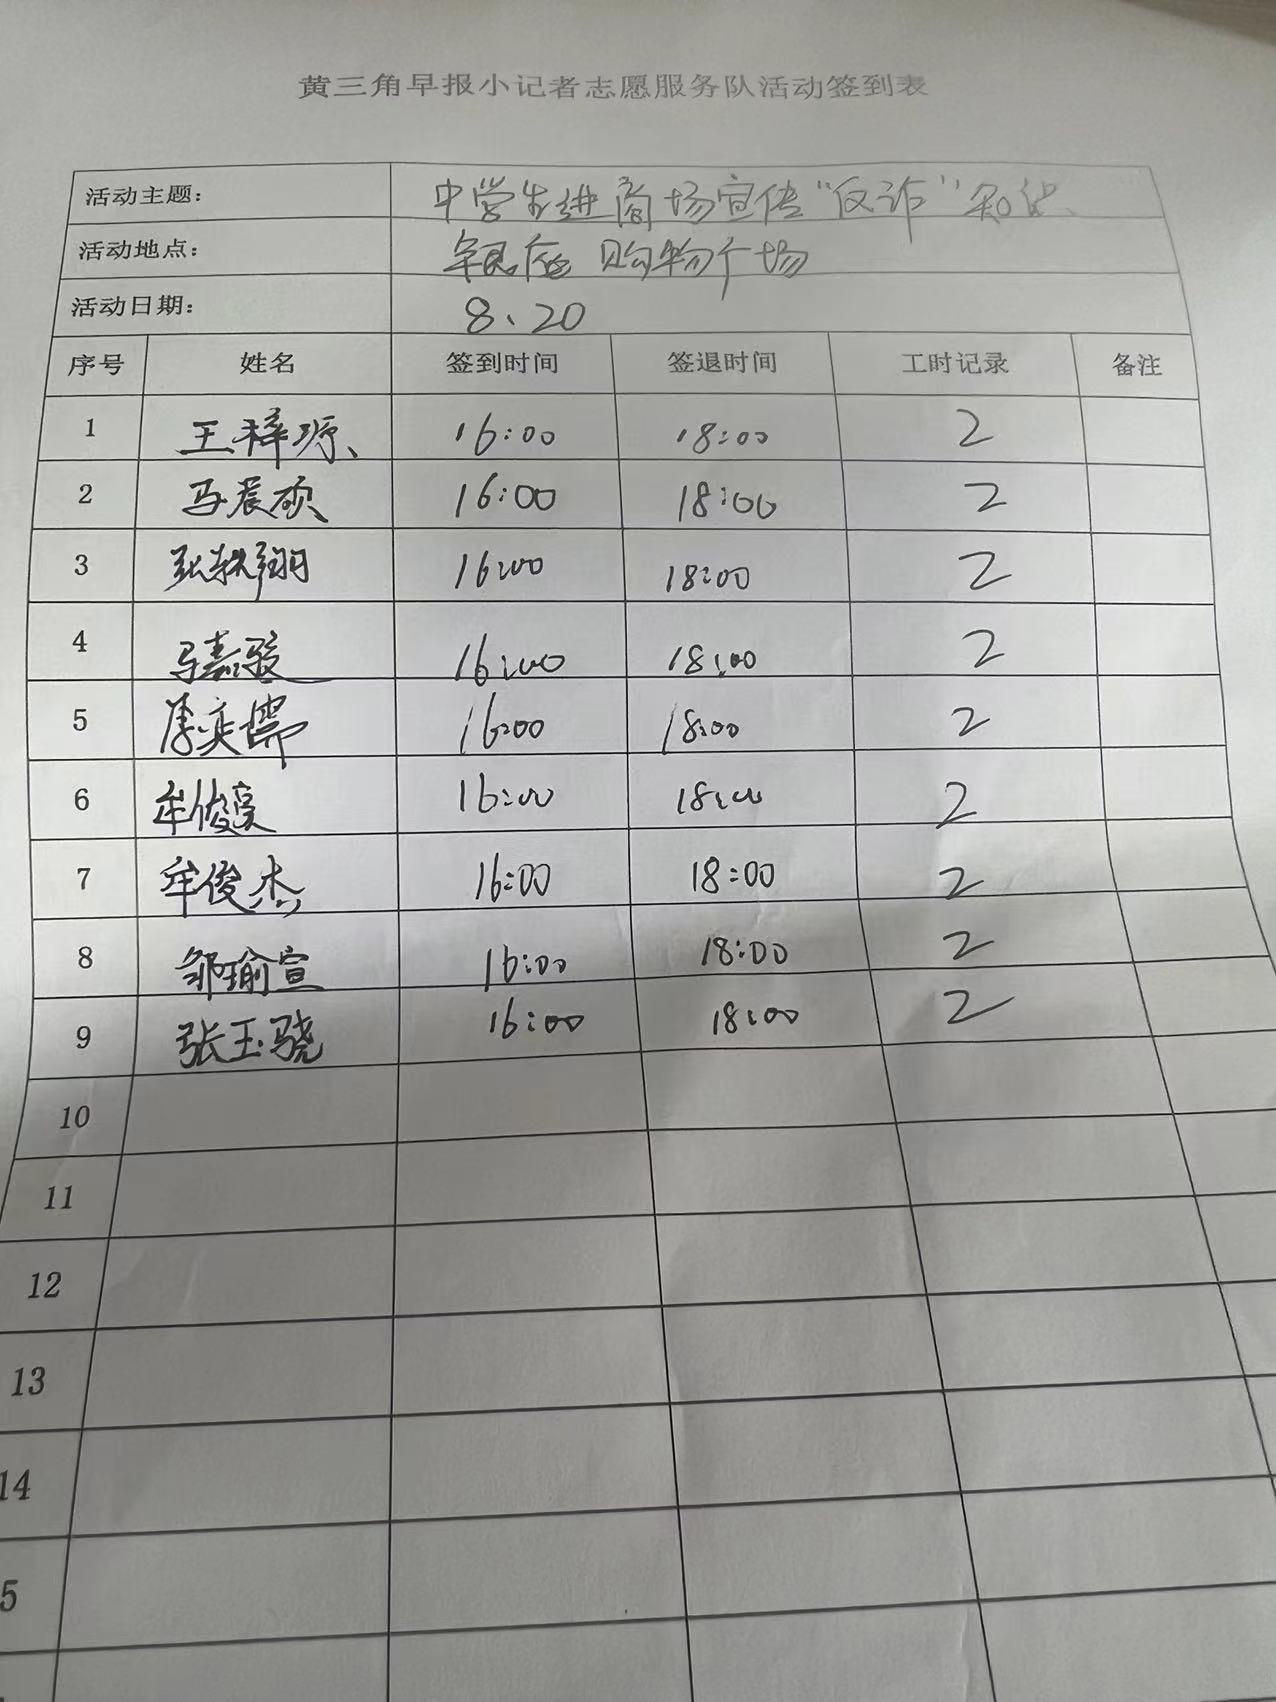 黄三角早报小记者志愿服务队活动签到表
活动主题： 中学生进商场宣传“反诈”知识
活动地点： 银座购物广场
活动日期： 8、20
序号 姓名 签到时间 签退时间 工时记录 备注
1 王梓源 16:00 18:00 2
2 马宸硕 16:00 18:00 2
3 张轶翔 16:00 18:00 2
4 马嘉骏 16:00 18:00 2
5 李奕儒 16:00 18:00 2
6 牟俊豪 16:00 18:00 2
7 牟俊杰 16:00 18:00 2
8 邹瑜宣 16:00 18:00 2
9 张玉骁 16:00 18:00 2
10
11
12
13
14
5